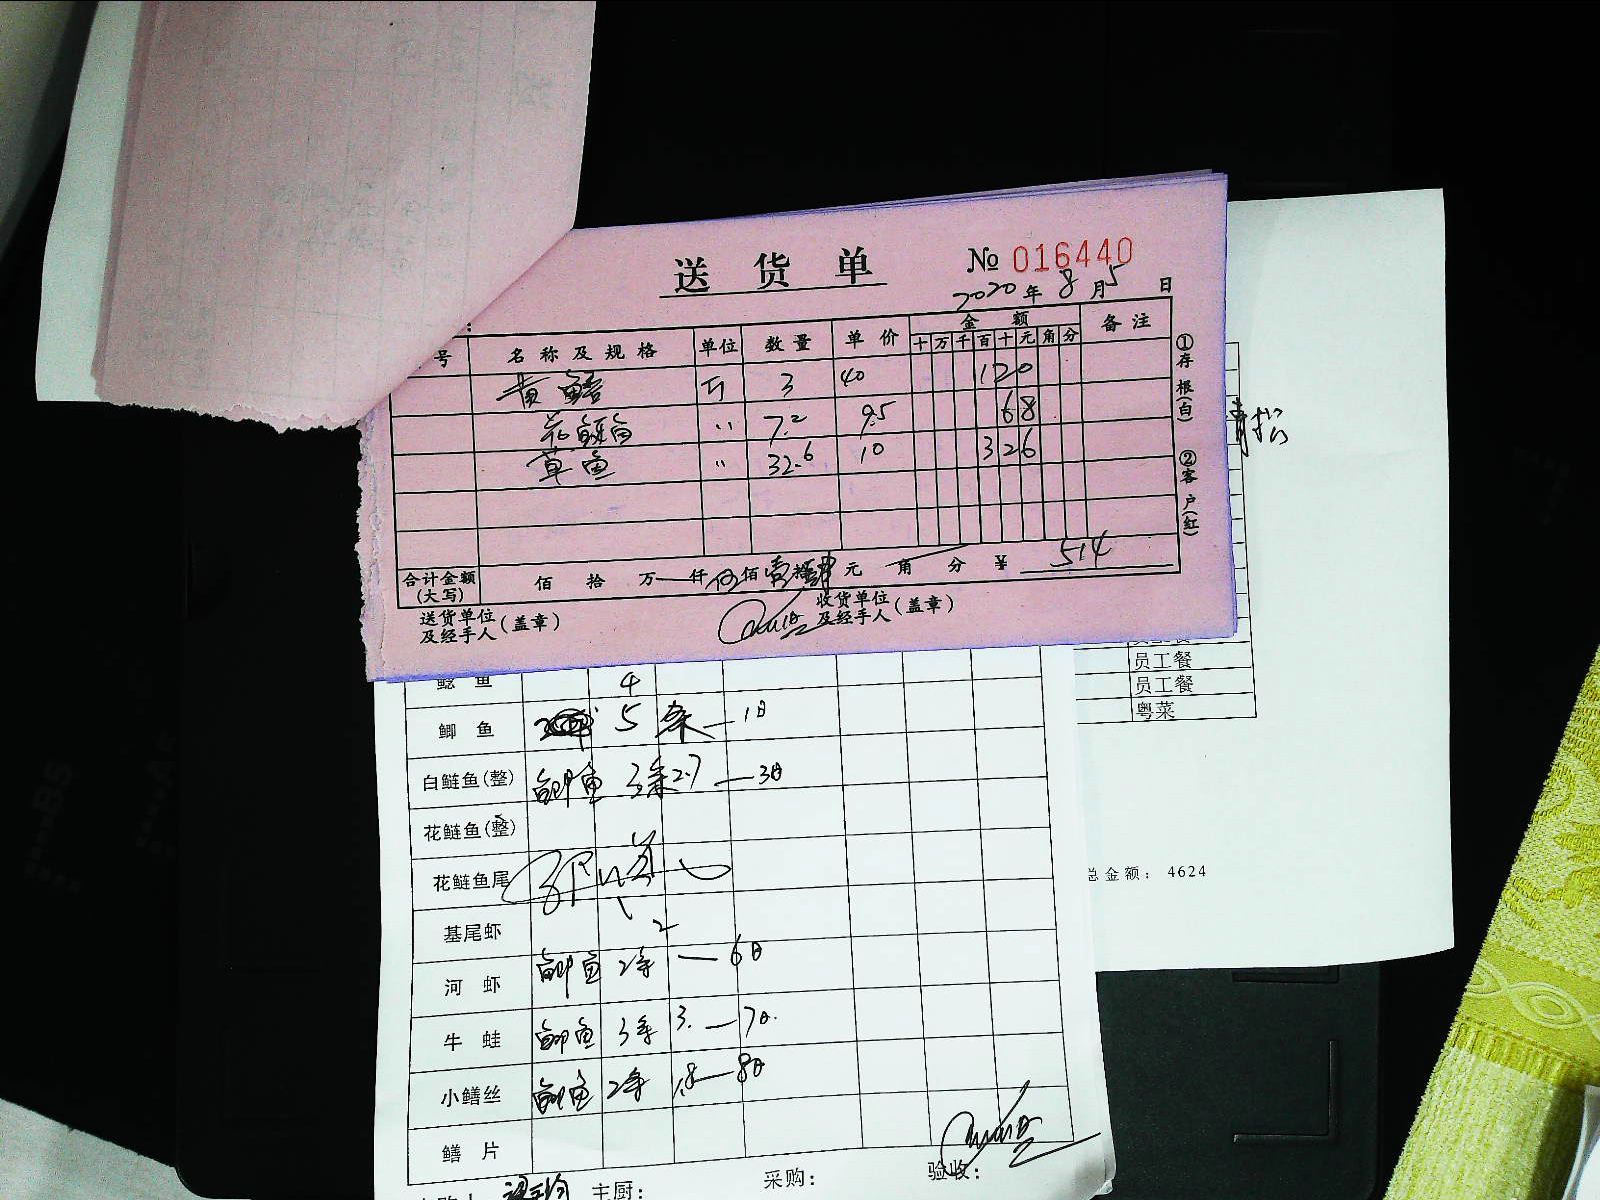 送货单 № 016440
2020年8月5日
:
号 名称及规格 单位 数量 单价 金额 备注
十 万 千 百 十 元 角 分
黄鳝 斤 3 40 120
花鲢鱼 〃 7.2 9.5 68
草鱼 〃 32.6 10 326
合计金额(大写) 佰 拾 万 仟 伍佰壹拾肆元 角 分 ¥ 514
送货单位及经手人(盖章) 收货单位及经手人(盖章)
①存根(白) ②客户(红)
青松
员工餐
员工餐
粤菜
总金额: 4624
鲶鱼 4
鲫鱼 5条—1日
白鲢鱼(整) 鲫鱼 3条2.7—3日
花鲢鱼(整)
花鲢鱼尾
基尾虾 2
河虾 鲫鱼 2条—6日
牛蛙 鲫鱼 3条 3.—7日.
小鳝丝 鲫鱼 2条 1.8—8日
鳝片
主厨: 采购: 验收: